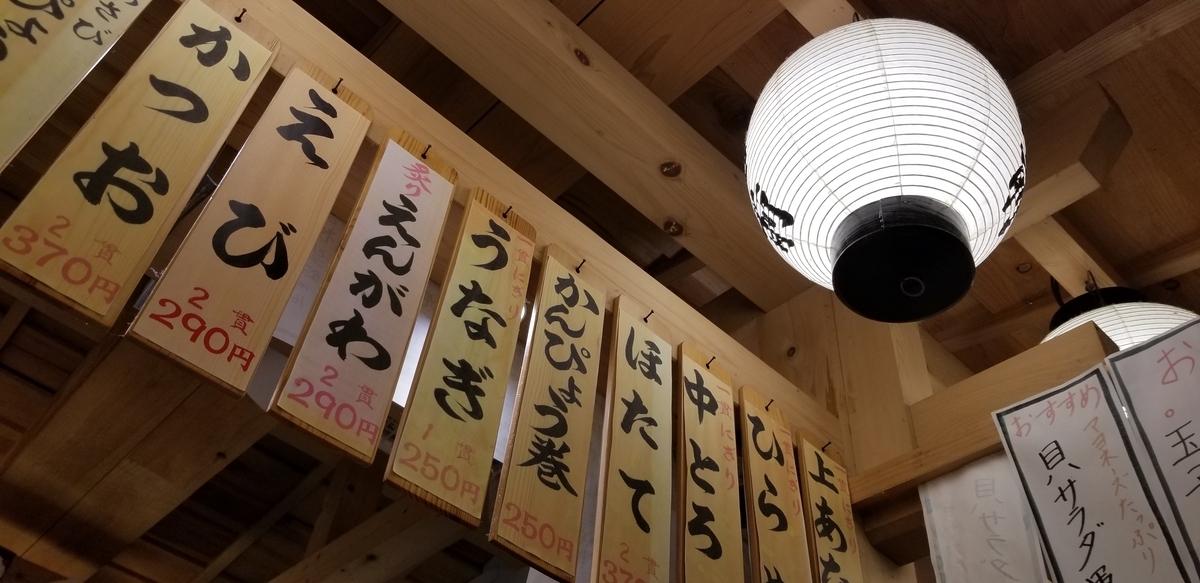 かつお
2貫
370円
えび
2貫
290円
炙り
えんがわ
2貫
290円
一貫にぎり
うなぎ
1貫
250円
かんぴょう巻
250円
ほたて
2
一貫にぎり
中とろ
ひら
上あな
おすすめ
マヨネーズたっぷり
貝サラダ
お
玉